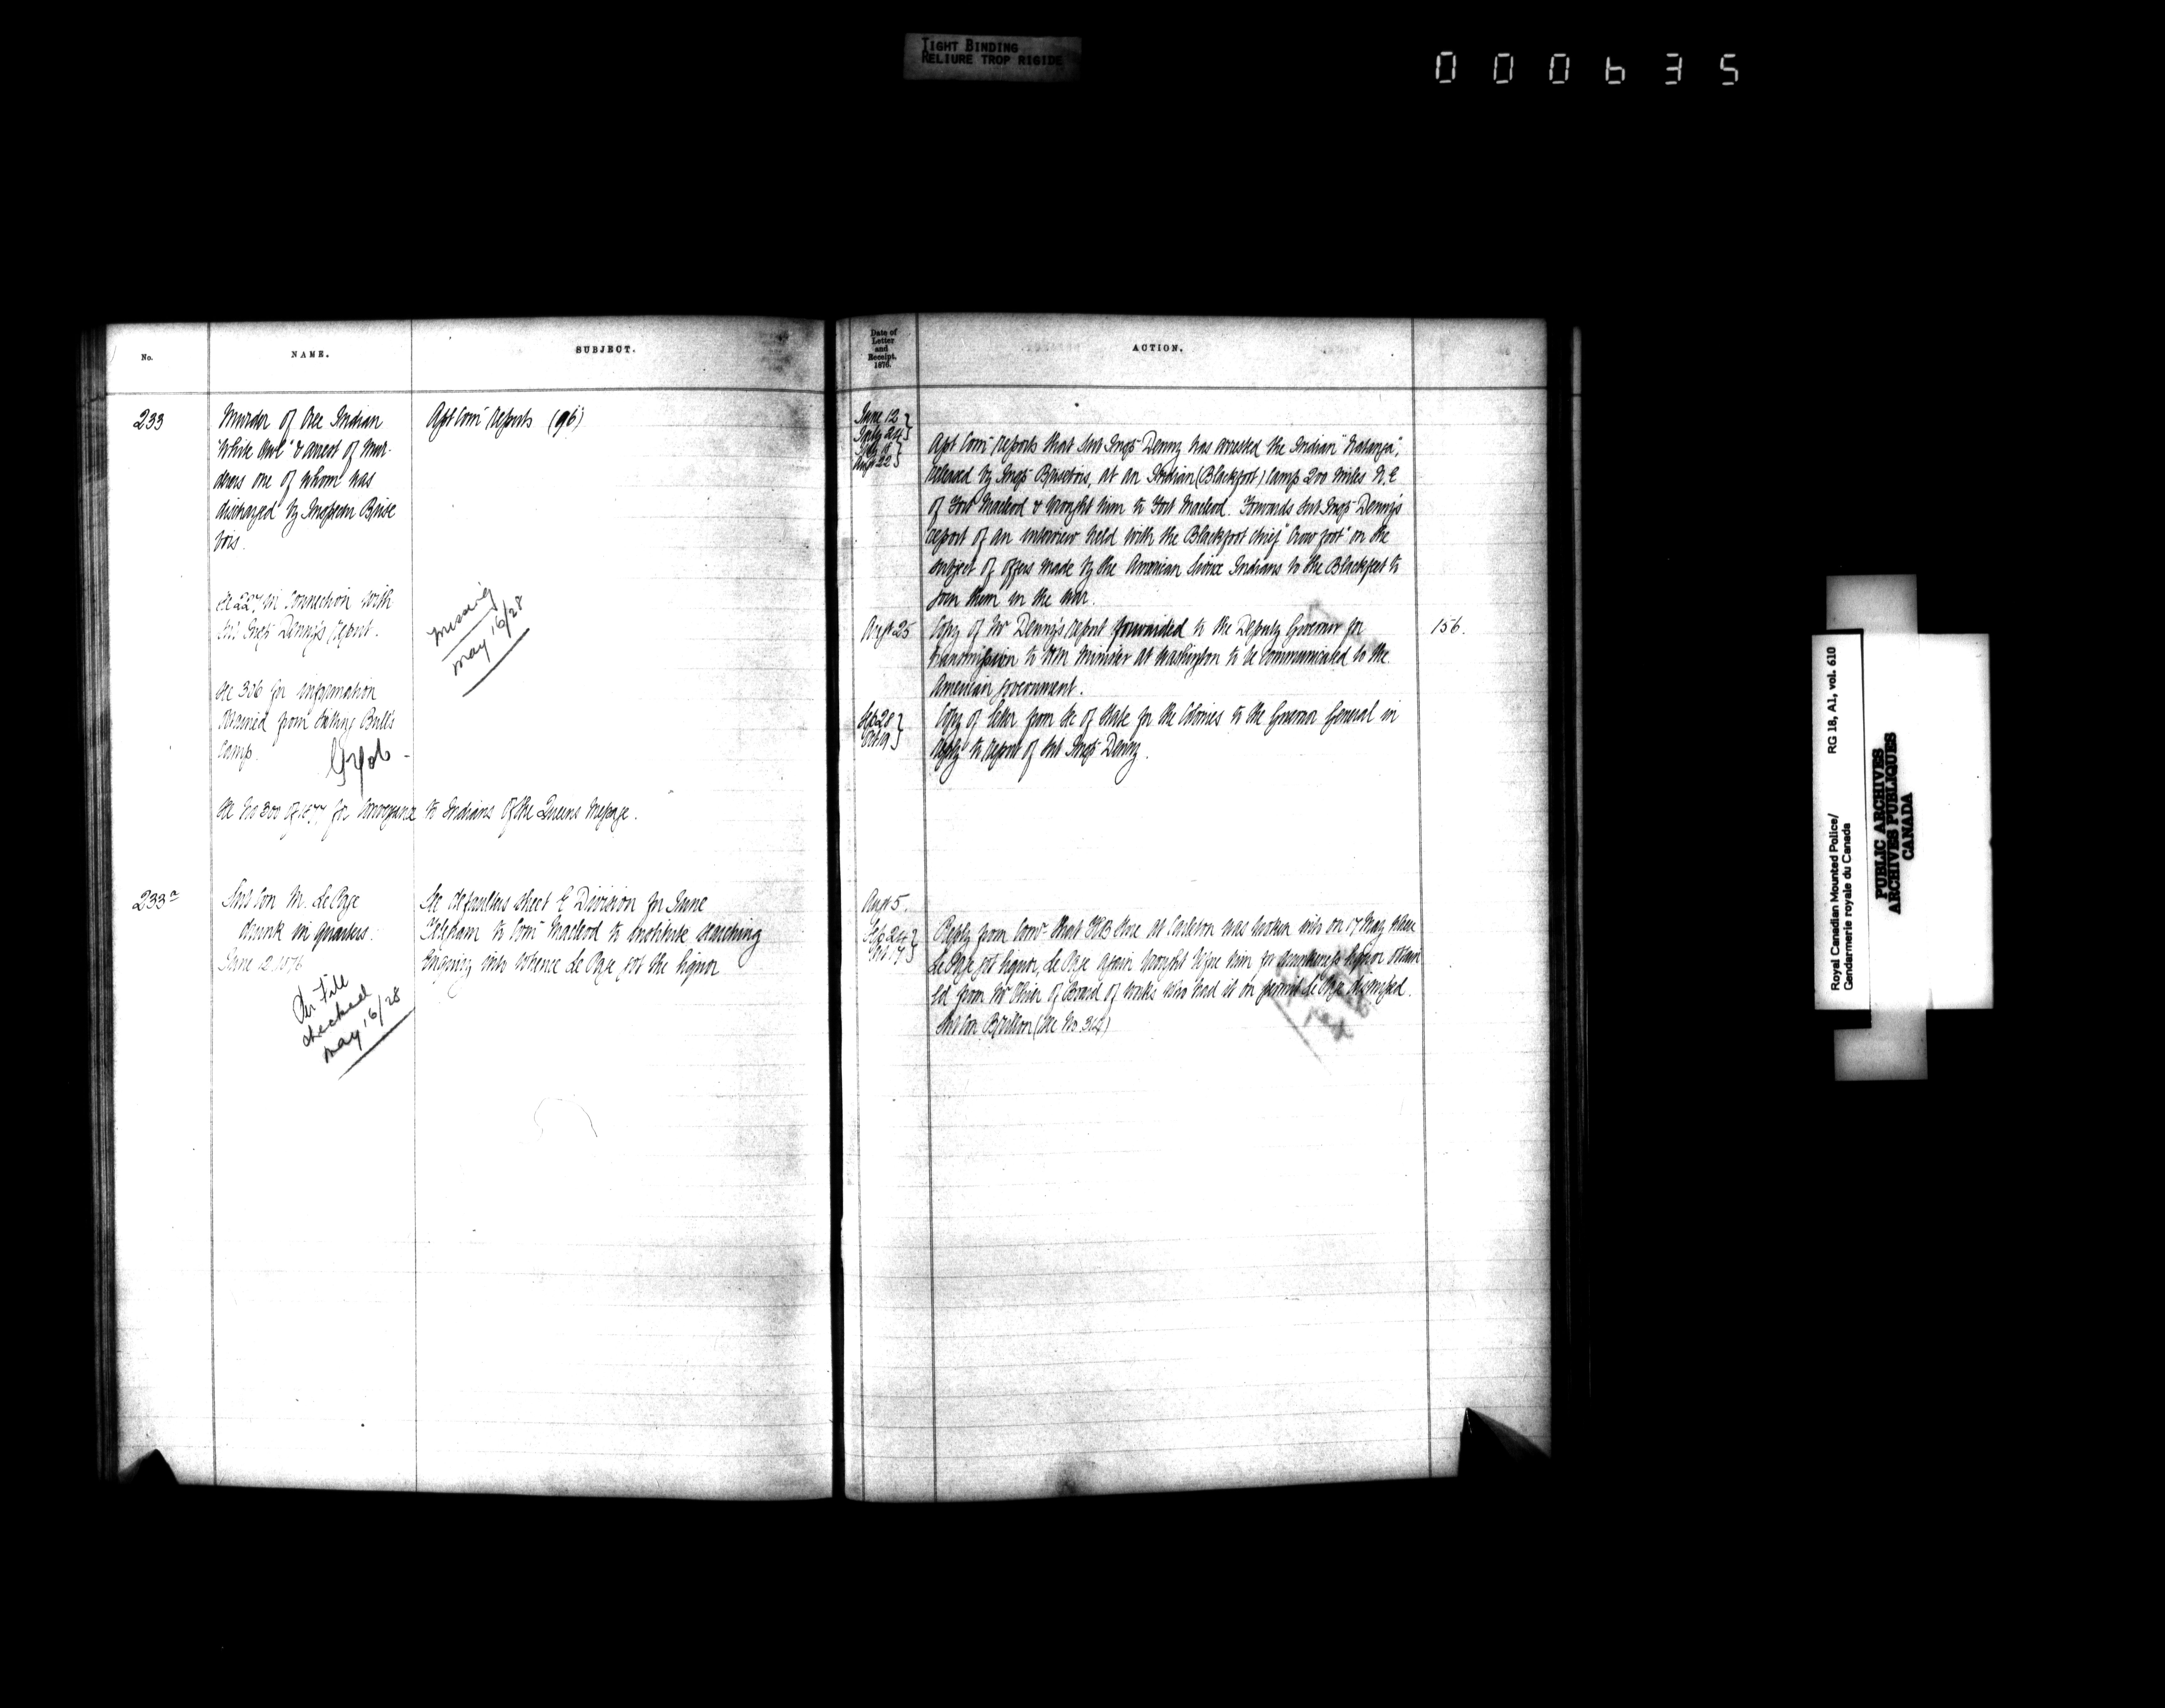 TIGHT BINDING
RELIURE TROP RIGIDE
000635
No.
NAME.
SUBJECT.
233
Murder of Cree Indian
"White Owl" & arrest of Mur-
derers one of whom was
discharged by Inspector Brise
bois.
Asst Comr Reports (96)
See 227 in connection with
Sub Inspr Denny's report.
missing
may 16/28
See 306 for information
obtained from Sitting Bull's
camp.
See No 300 of 1877 for conveyance to Indians of the Queens Message.
233a
Sub Con M. LePage
drunk in quarters.
June 12 1876
On File
checked
may 16/28
See defaulters sheet E Division for June
Telegram to Comr Macleod to institute searching
enquiry into whence Le Page got the liquor
Date of
Letter
and
Receipt.
1876.
ACTION.
June 12
July 24
July 18
Augt 22
Asst Comr reports that Sub Inspr Denny has arrested the Indian "Natanga",
released by Inspr Brisebois, at an Indian (Blackfoot) Camp 200 miles N.E
of Fort Macleod & brought him to Fort Macleod. Forwards Sub Inspr Denny's
report of an interview held with the Blackfoot chief "Crow foot" on the
subject of offers made by the American Sioux Indians to the Blackfeet to
join them in the war.
Augt 25
Copy of Mr Denny's report forwarded to the Deputy Governor for
transmission to HM Minister at Washington to be communicated to the
American government.
156.
Sep 28
Oct 19
Copy of letter from Sec of State for the Colonies to the Governor General in
reply to report of Sub Inspr Denny.
Augt 5.
Sep 24
Oct 17
Reply from Comr that HB Store at Carleton was broken into on 17 May where
Le Page got liquor, Le Page again brought before him for drunkenness liquor obtain
ed from Mr of Board of works who had it on permit Le Page dismissed.
Sub Con (See No 314)
Royal Canadian Mounted Police/
Gendarmerie royale du Canada
RG 18, A1, vol. 610
PUBLIC ARCHIVES
ARCHIVES PUBLIQUES
CANADA